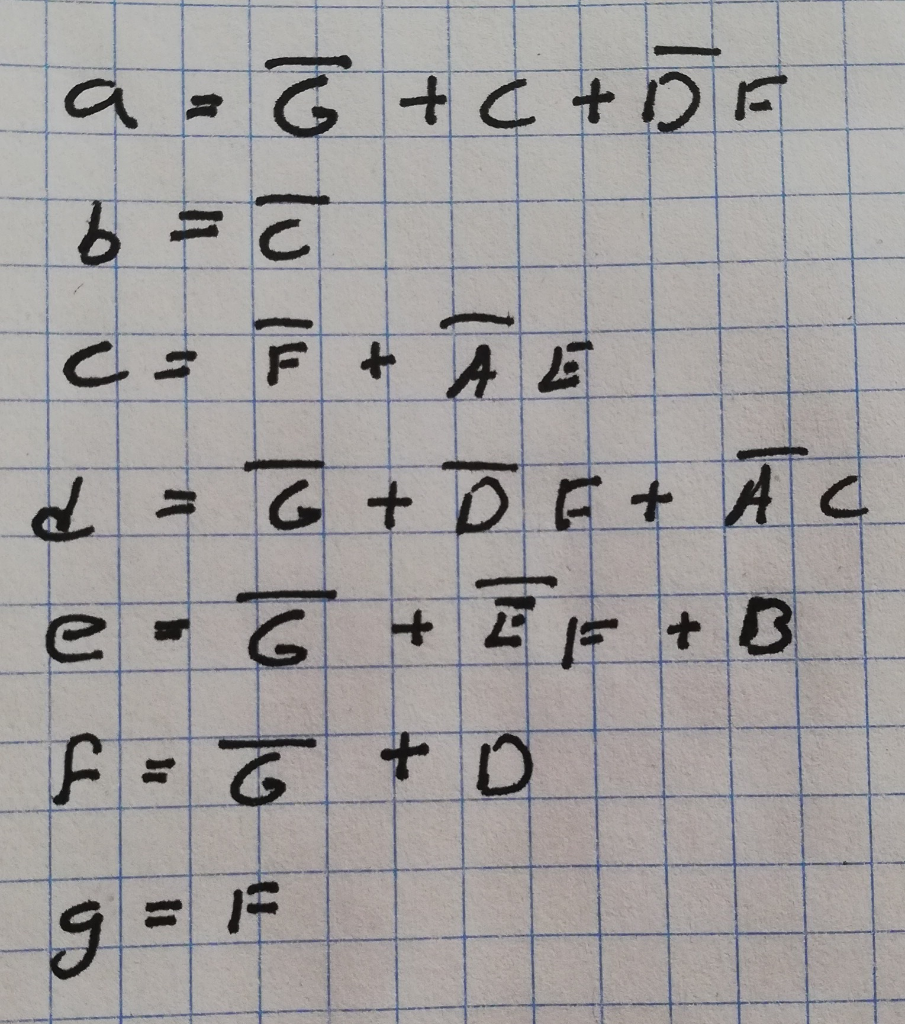 a = G̅ + C + D̅ F
b = C̅
c = F̅ + A̅ E
d = G̅ + D̅ F + A̅ C
e = G̅ + E̅ F + B
f = G̅ + D
g = F